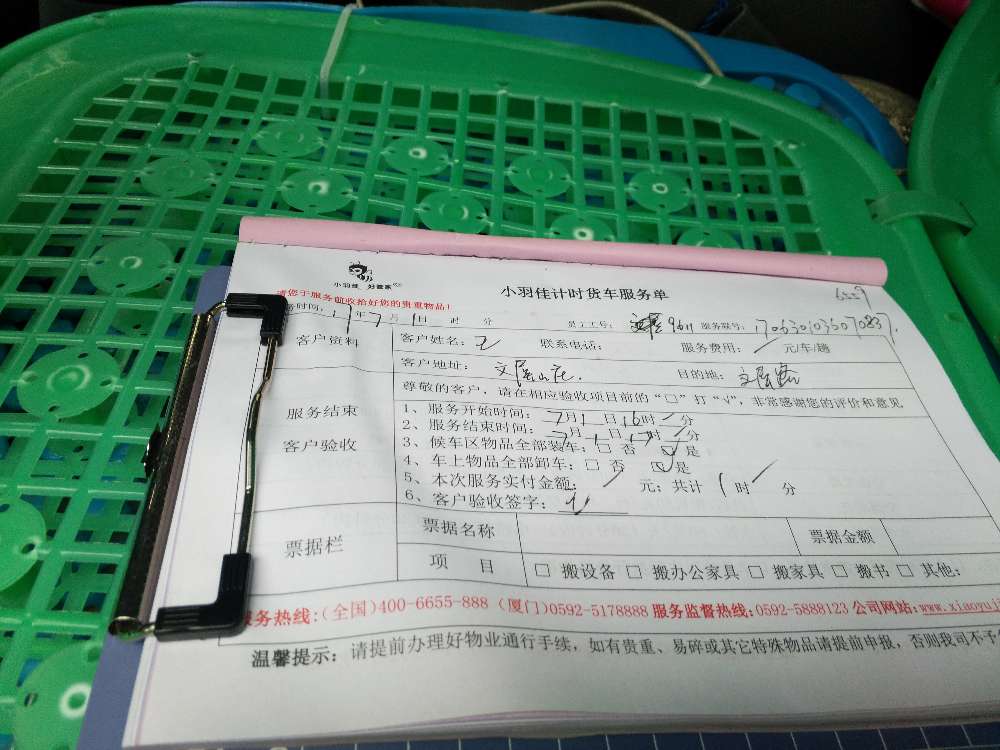 小羽佳 好管家
小羽佳计时货车服务单
请您于服务前收拾好您的贵重物品!
务时间: 年 7 月 1 日 时 分 员工工号: 9611 服务联号: 170630103607083
客户资料 客户姓名: 王 联系电话: 服务费用: 元/车/趟
客户地址: 文屏山庄. 目的地: 文屏
尊敬的客户, 请在相应验收项目前的“□”打“√”, 非常感谢您的评价和意见
服务结束
客户验收
1、服务开始时间: 7月1日16时 分
2、服务结束时间: 7月1日17时 分
3、候车区物品全部装车: □ 否 ☑是
4、车上物品全部卸车: □ 否 ☑是
5、本次服务实付金额: 元; 共计 1 时 分
6、客户验收签字:
票据栏 票据名称 票据金额
项 目 □ 搬设备 □ 搬办公家具 □ 搬家具 □ 搬书 □ 其他:
服务热线:(全国)400-6655-888 (厦门)0592-5178888 服务监督热线:0592-5888123 公司网站:www.xiaoyuj
温馨提示: 请提前办理好物业通行手续, 如有贵重、易碎或其它特殊物品请提前申报, 否则我司不予